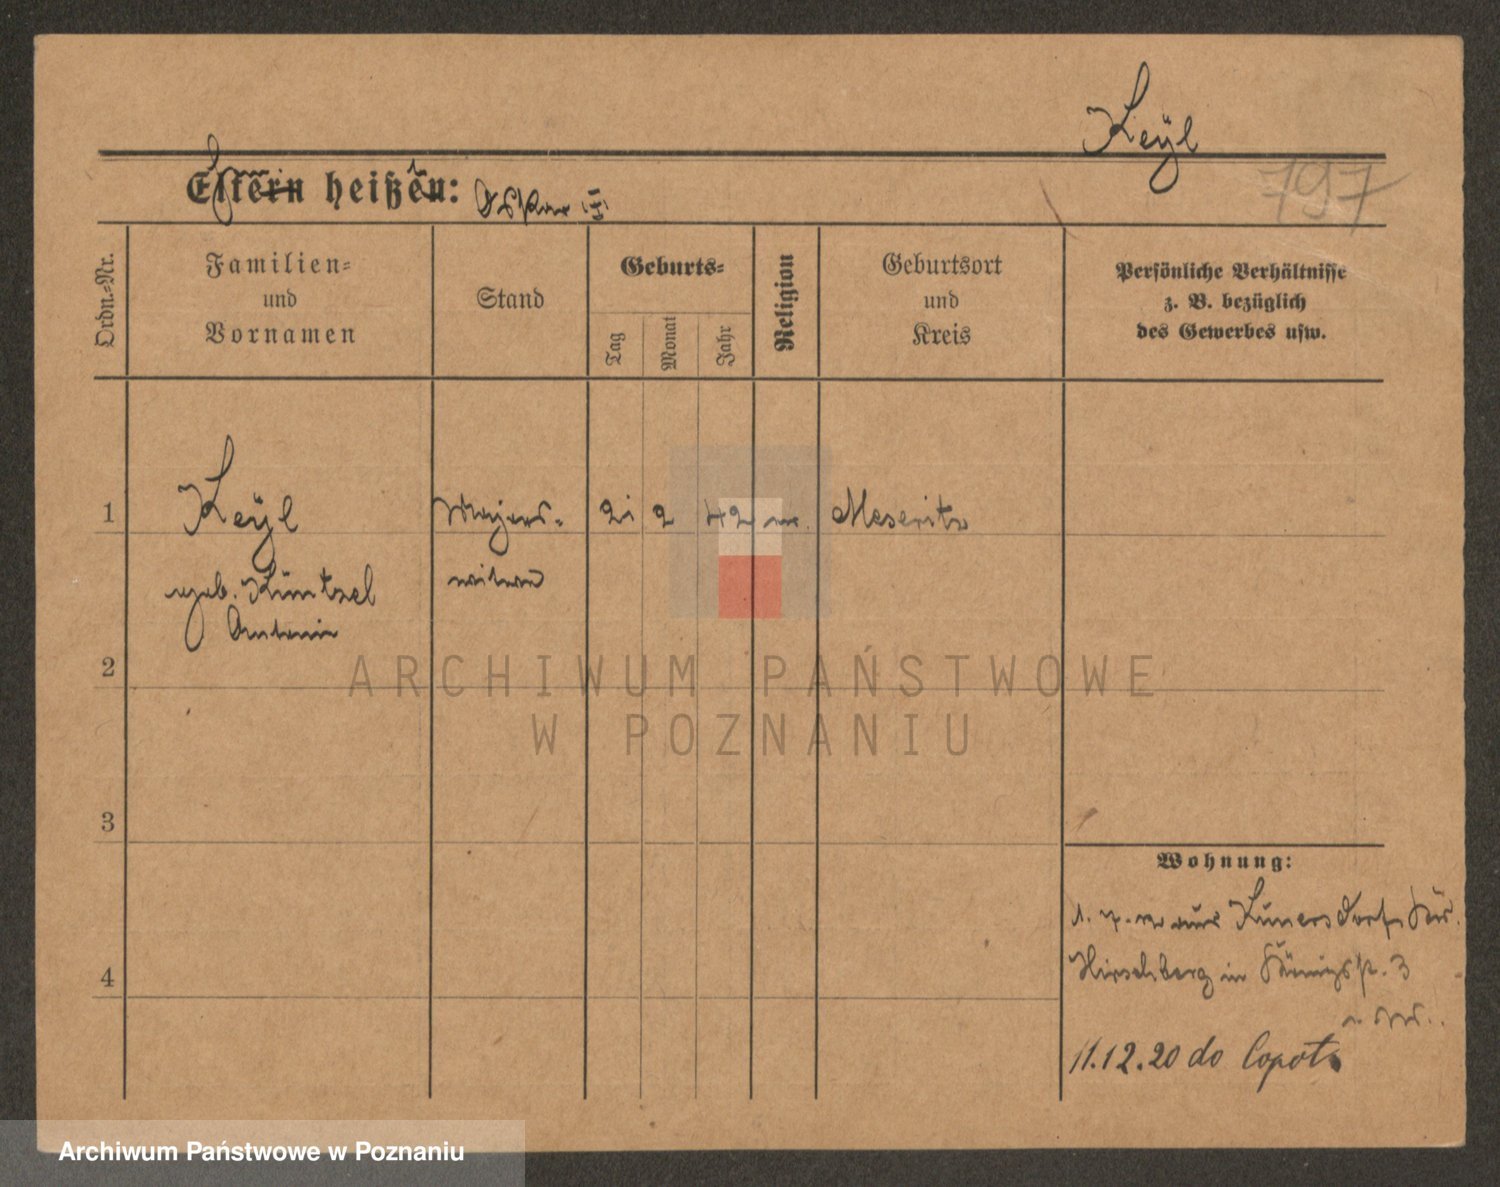 Keÿl
797
Eltern heißen: Oskar
Ordn.-Nr.
Familien-
und
Vornamen
Stand
Geburts-
Tag
Monat
Jahr
Religion
Geburtsort
und
Kreis
Persönliche Verhältnisse
z. B. bezüglich
des Gewerbes usw.
1
Keÿl
Majors-
21 2 42
Meseritz
geb. Küntzel
witwe
Antonie
2
ARCHIWUM PAŃSTWOWE
W POZNANIU
3
Wohnung:
aus Kunersdorf Krs.
4
Hirschberg in Königspl. 3
11.12.20 do Copot
Archiwum Państwowe w Poznaniu